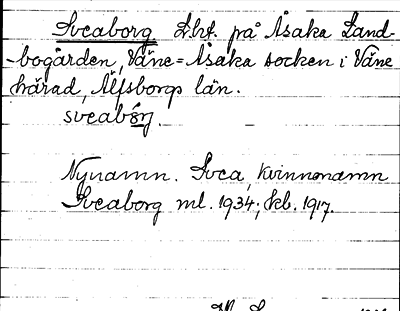 Sveaborg Lht. på Åsaka Land-
bogården, Väne=Åsaka socken i Väne
härad, Älfsborgs län.
sveabȯrj.
Nynamn. Svea, kvinnonamn
Sveaborg ml. 1934; kb. 1917.